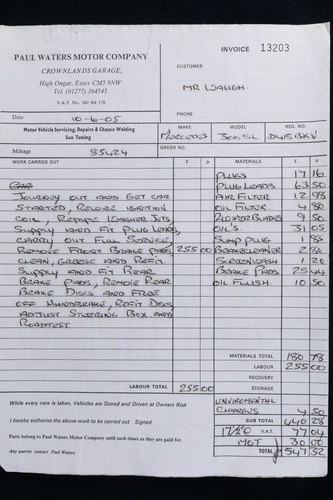 PAUL WATERS MOTOR COMPANY
CROWNLANDS GARAGE,
High Ongar, Essex CM5 9NW
Tel. (01277) 364545
V.A.T. No.
INVOICE 13203
CUSTOMER
MR WAUGH.
PHONE
Date 10-6-05
Motor Vehicle Servicing, Repairs & Chassis Welding
Sun Tuning
MAKE MODEL REG. NO.
MERCEDES 300 SL
Mileage 85424
ORDER NO.
WORK CARRIED OUT £ p MATERIALS £ p
PLUGS 17 16
CAR PLUG LEADS 63 50
JOURNEY OUT AND GET CAR AIR FILTER 12 98
STARTED, REMOVE IGNITION OIL FILTER 4 88
COIL, REPAIR WASHER JETS, WIPER BLADES 9 50
SUPPLY AND FIT PLUG LEADS, OIL'S 31 05
CARRY OUT FULL SERVICE SUMP PLUG 1 85
REMOVE FRONT BRAKE PADS, 255 00 BRAKECLEANER 2 86
CLEAN, GREASE AND REFIT SCREENWASH 1 20
SUPPLY AND FIT REAR BRAKE PADS 25 44
BRAKE PADS, REMOVE REAR OIL FLUSH 10 50
BRAKE DISCS AND FREE
OFF HANDBRAKE, REFIT DISCS
ADJUST STEERING BOX AND
ROADTEST
MATERIALS TOTAL 180 78
LABOUR 255 00
RECOVERY
LABOUR TOTAL 255 00 STORAGE
While every care is taken, Vehicles are Stored and Driven at Owners Risk
ENVIROMENTAL
CHARGES 4 50
I hereby authorise the above work to be carried out Signed
SUB TOTAL 440 28
17½% V.A.T. 77 04
Parts belong to Paul Waters Motor Company until such times as they are paid for.
MOT 30 00
Any queries contact Paul Waters
TOTAL £547 32